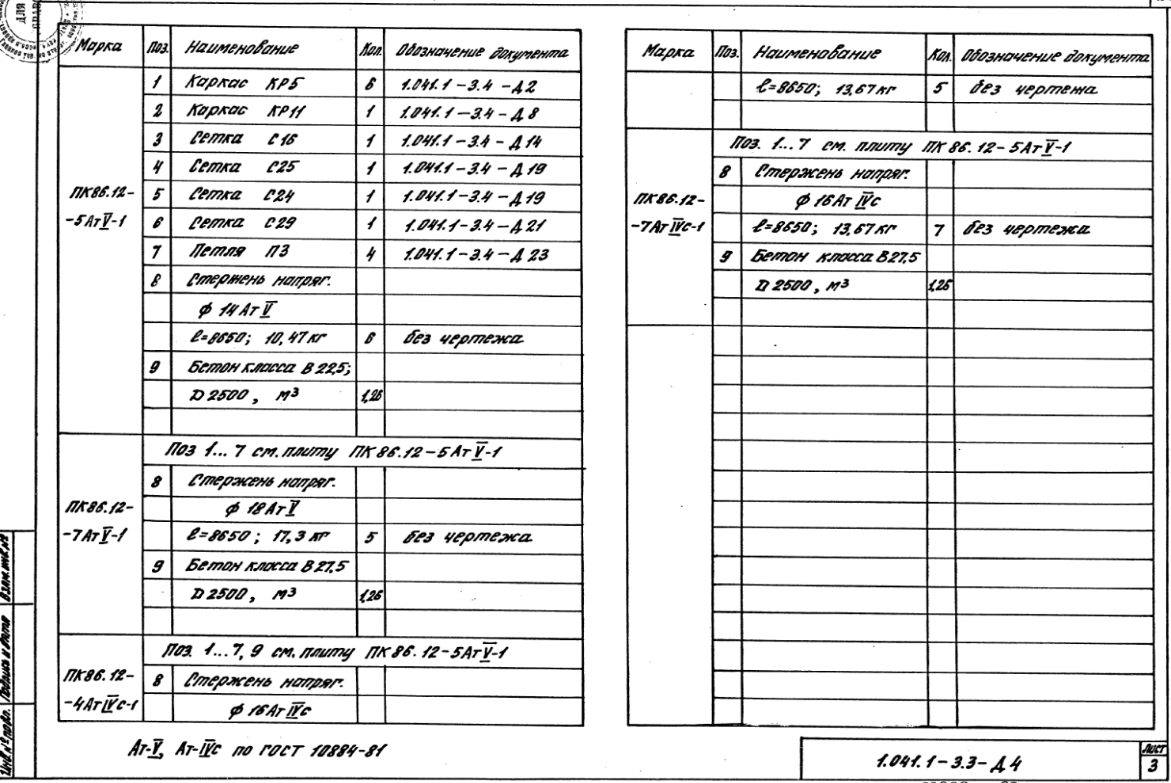 Марка Поз. Наименование Кол. Обозначение документа
ПК86.12-
-5АтV-1
1 Каркас КР5 6 1.041.1-3.4-Д2
2 Каркас КР11 1 1.041.1-3.4-Д8
3 Сетка С16 1 1.041.1-3.4-Д14
4 Сетка С25 1 1.041.1-3.4-Д19
5 Сетка С24 1 1.041.1-3.4-Д19
6 Сетка С29 1 1.041.1-3.4-Д21
7 Петля П3 4 1.041.1-3.4-Д23
8 Стержень напряг.
ϕ 14АтV
ℓ=8650; 10,47кг 6 без чертежа
9 Бетон класса В22,5;
D2500, м³ 1,26
ПК86.12-
-7АтV-1
Поз 1...7 см. плиту ПК86.12-5АтV-1
8 Стержень напряг.
ϕ 18АтV
ℓ=8650; 17,3 кг 5 без чертежа
9 Бетон класса В27,5
D2500, м³ 1,26
ПК86.12-
-4АтIVс-1
Поз. 1...7,9 см. плиту ПК86.12-5АтV-1
8 Стержень напряг.
ϕ 16АтIVс
Марка Поз. Наименование Кол. Обозначение документа
ℓ=8650; 13,67кг 5 без чертежа
ПК86.12-
-7АтIVс-1
Поз. 1...7 см. плиту ПК86.12-5АтV-1
8 Стержень напряг.
ϕ 16АтIVс
ℓ=8650; 13,67кг 7 без чертежа
9 Бетон класса В27,5
D2500, м³ 1,26
Ат-V, Ат-IVс по ГОСТ 10884-81
1.041.1-3.3-Д4
Лист
3
Инв.№ подл. Подпись и дата Взам.инв.№